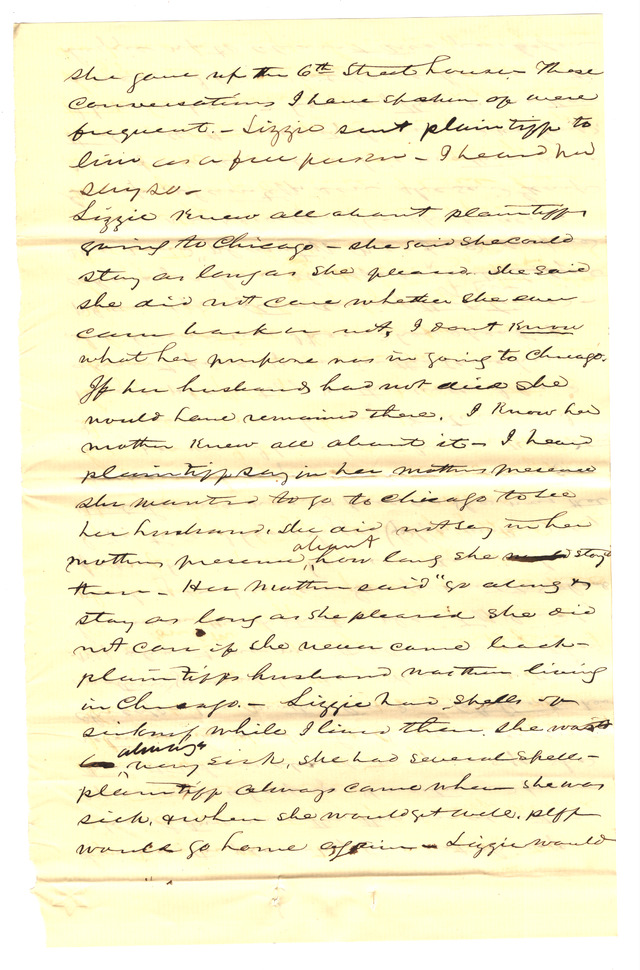 she gave up the 6th Street house. – These
conversations I have spoken of were
frequent. – Lizzie sent plaintiff to
live as a free person – I heard her
say so –
Lizzie knew all about plaintiffs
going to Chicago – she said she could
stay as long as she pleased. She said
she did not care whether she ever
came back or not, I dont know
what her purpose was in going to Chicago.
If her husband had not died she
would have remained there. I know her
mother knew all about it – I hear
plaintiff say in her mothers presence
she wanted to go to Chicago to see
her husband. she did not say in her
mothers presence about how long she stay
there – Her mother said "go along &
stay as long as she pleased she did
not care if she never came back –
plaintiffs husband was then living
in Chicago. – Lizzie had spells of
sickness while I lived there. she was
always very sick, she had several spells –
plaintiff always came when she was
sick. & when she would get well. plff
would go home again – Lizzie would